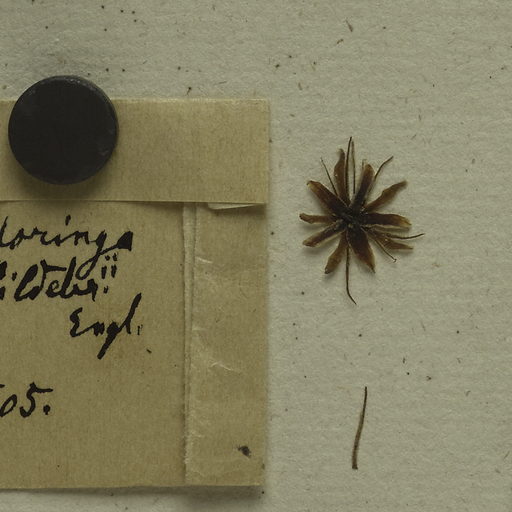 loringa
ildebr.ii
Engl.
505.